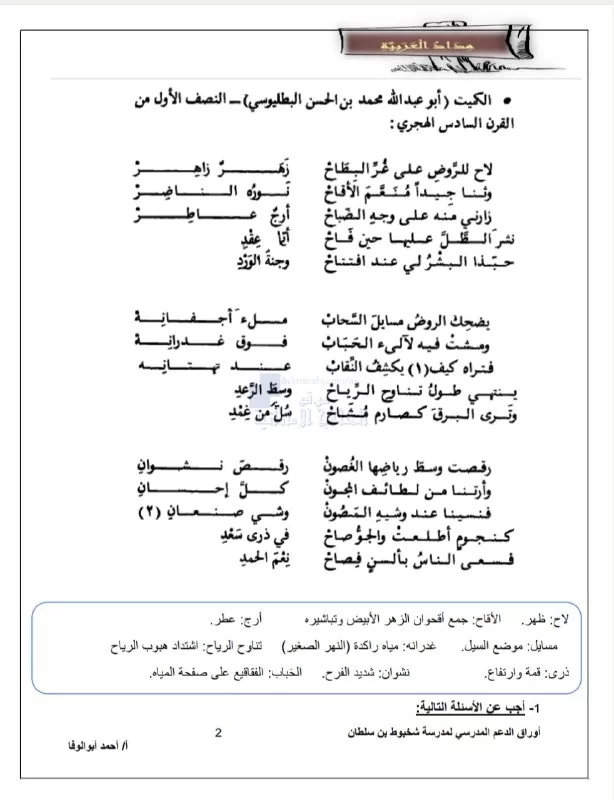 مداد العربية
• الكميت (أبو عبدالله محمد بن الحسن البطليوسي) – النصف الأول من
القرن السادس الهجري:
لاح للرَّوضِ على غُرِّ البِطَاحْ زَهَـــرٌ زاهِـــرْ
وثنـا جِيـداً مُنَعَّمَ الأقَاحْ نَوْرُه النـاضِـرْ
زارني منه على وجهِ الصَّباحْ أرجٌ عـاطِـرْ
نشرَ الطَّلُّ عليها حين فَاحْ أيّما عِقْدِ
حبّذا البشْرُ لي عند افتتاحْ وجنةُ الوَرْدِ
يضحِك الروضُ مسايلَ السَّحابْ مــلءَ أجــفــانِـهْ
ومشتْ فيه لآلىء الحَبَابْ فــوق غــدرانِـهْ
فتراه كيف (١) يكشِفُ النِّقابْ عــنــد تهــتــانِـه
ينتهي طولُ تناوح الرِّياحْ وسطَ الرَّعدِ
وتَرى البرقَ كصارم مُشَاحْ سُلَّ من غِمْدِ
almanahj.com/ae
موقع
المناهج الإماراتية
رقصت وسطَ رياضِها الغُصونْ رقــصَ نــشــوانِ
وأرتنـا من لـطـائـف المجونْ كــلَّ إحــســانِ
فنسينا عند وشيهِ المَصُونْ وشي صنعـانِ (٢)
كنجومٍ أطلعتْ والجوُّ صاحْ في ذرى سَعْدِ
فسعى الناسُ بألسنٍ فِصاحْ نِعْمَ الحمدِ
لاح: ظهر. الأقاح: جمع أقحوان الزهر الأبيض وتباشيره أرج: عطر.
مسايل: موضع السيل. غدرانه: مياه راكدة (النهر الصغير) تناوح الرياح: اشتداد هبوب الرياح
ذرى: قمة وارتفاع. نشوان: شديد الفرح. الحَباب: الفقاقيع على صفحة المياه.
1- أجب عن الأسئلة التالية:
أوراق الدعم المدرسي لمدرسة شخبوط بن سلطان 2
أ/ أحمد أبوالوفا